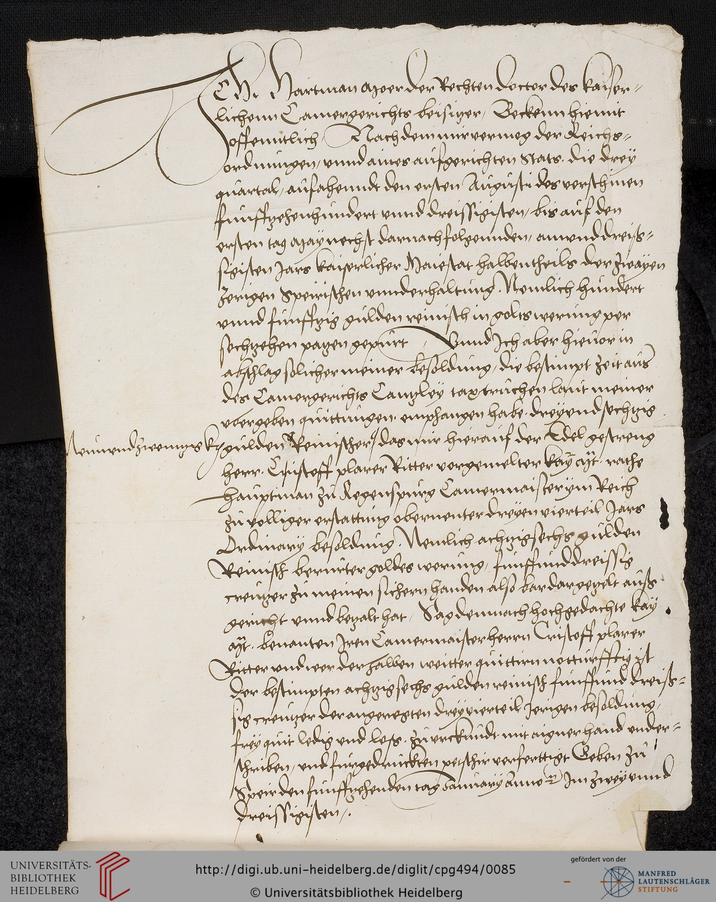 Ich Hartman Moer der Rechten doctor des Kaiser-
lichenn Camergerichts beisitzer, Bekenn hiemit
offentlich Nachdem mir vermog der Reichs-
ordnungen, unnd aines aufgerichten Stats, die drey
quartal, anfahenndt den ersten Augusti des verschinen
funffzehenhundert unnd dreissigisten, bis auf den
ersten tag May nechst darnach folgennden, ainunddreiss-
sigisten Jars Kaiserlicher Maiestat halbentheils der zwayen
Jerigen Speirischen unnderhaltung, Nemlich hundert
unnd funffzig gulden reinisch in golts werung per
sechzehen patzen gepurt, Unnd Ich aber hievor in
abschlag solicher meiner besoldung, die bestimpt zeit aus
des Camergerichts Canzley taxtruchen laut meiner
ubergeben quittungen, empfangen habe, dreyundsechzig
Neunundzwenzig kr gulden Reinischer, das mir hierauf der Edel gestreng
herr Cristoff plarer Ritter vorgemelter Kay. Mt. rathe
Hauptman zu Regenspurg Camermaister ym Reich
zu volliger erstattung obernenter dreyen vierteil Jars
Ordinary besoldung, Nemlich achtzigsechs gulden
Reinisch berurter goldes werung, funffunddreissig
creutzer zu meinen sichern handen also bar dargezelt auss-
gericht unnd bezalt hat, Sag demnach hochgedachte Kay.
Mt. benanten Iren Camermaister herrn Cristoff plarer
Ritter und wer derhalben weitter quittirn notturfftig ist
der bestimpten achtzigsechs gulden reinisch funffund dreiss-
sig creutzer der angeregten drey vierteil Jerigen besoldung,
frey quit ledig und loss, zu urkundt mit aigner hand under-
schriben, und furgedruckten petschir verfertigt Geben zu
Speir den funffzehenden tag January Anno etc. Im zwey unnd
dreissigisten.
UNIVERSITÄTS-
BIBLIOTHEK
HEIDELBERG
http://digi.ub.uni-heidelberg.de/diglit/cpg494/0085
© Universitätsbibliothek Heidelberg
gefördert von der
MANFRED
LAUTENSCHLÄGER
STIFTUNG